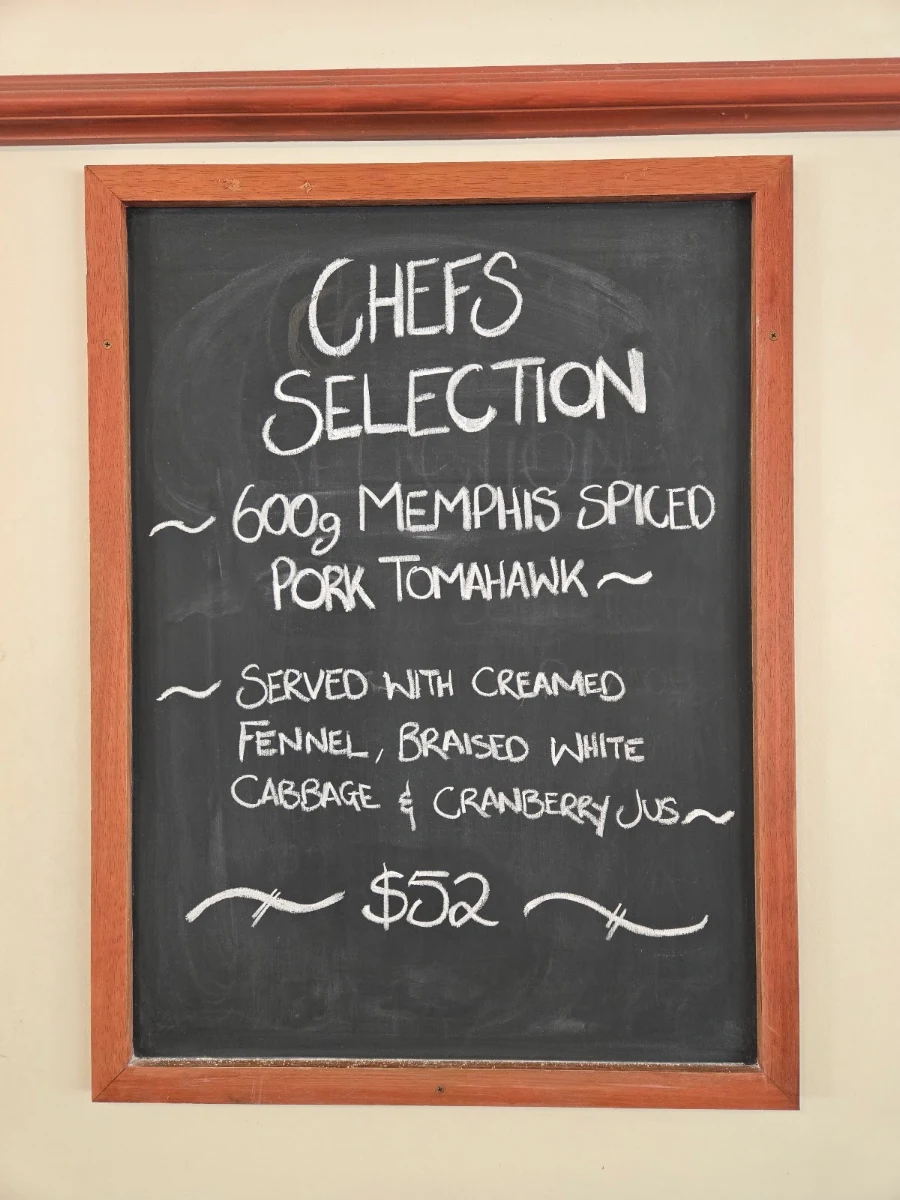 CHEFS
SELECTION
~ 600g MEMPHIS SPICED
PORK TOMAHAWK ~
~ SERVED WITH CREAMED
FENNEL, BRAISED WHITE
CABBAGE & CRANBERRY JUS ~
$52